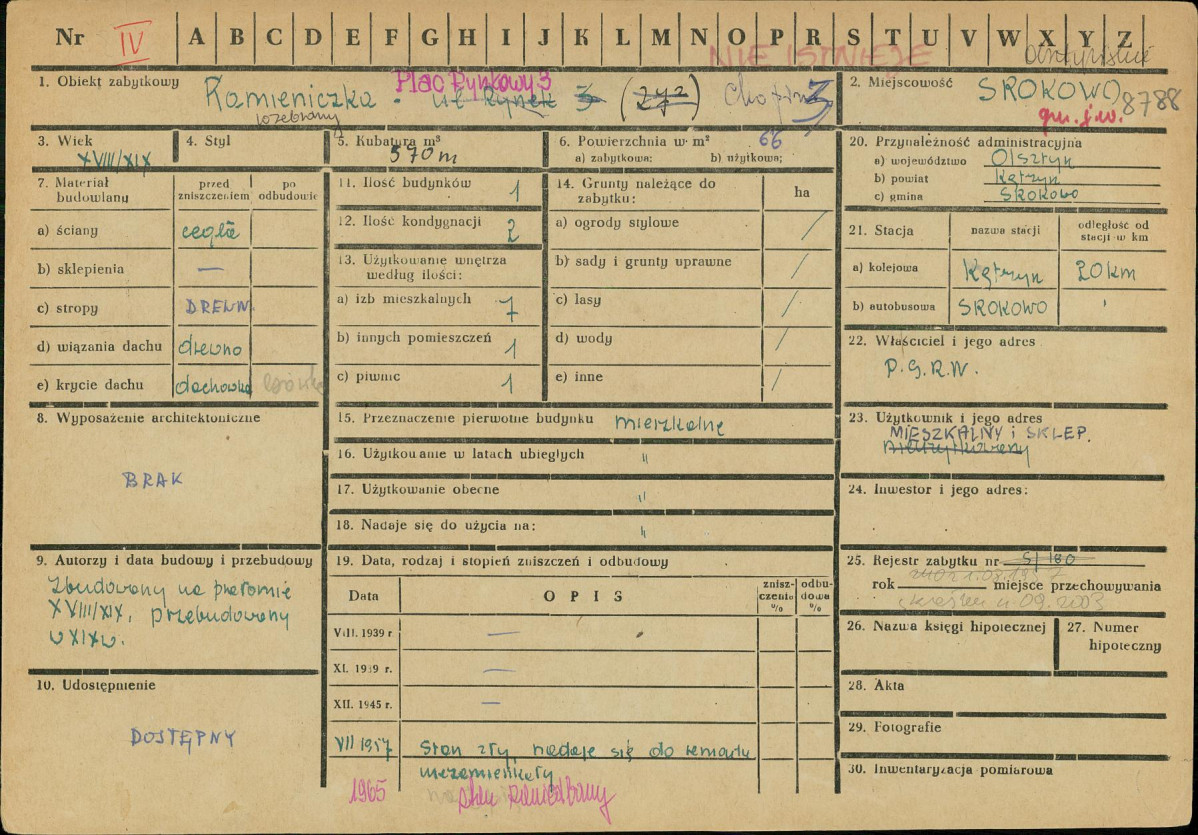 Nr IV A B C D E F G H I J K L M N O P R S T U V W X Y Z
NIE ISTNIEJE
1. Obiekt zabytkowy
Plac Rynkowy 3
Kamieniczka - ul. Rynek 3
rozebrany
2. Miejscowość
SROKOWO
8788
gm. j.w.
3. Wiek
XVIII/XIX
4. Styl
5. Kubatura m³
570 m
6. Powierzchnia w m²
66
a) zabytkowa; b) użytkowa;
7. Materiał budowlany
przed zniszczeniem
po odbudowie
a) ściany cegła
b) sklepienia —
c) stropy DREWN.
d) wiązania dachu drewno
e) krycie dachu dachówka
8. Wyposażenie architektoniczne
BRAK
9. Autorzy i data budowy i przebudowy
Zbudowany na przełomie
XVIII/XIX, przebudowany
w XIX w.
10. Udostępnienie
DOSTĘPNY
11. Ilość budynków 1
12. Ilość kondygnacji 2
13. Użytkowanie wnętrza
według ilości:
a) izb mieszkalnych 7
b) innych pomieszczeń 1
c) piwnic 1
14. Grunty należące do
zabytku:
ha
a) ogrody stylowe /
b) sady i grunty uprawne /
c) lasy /
d) wody /
e) inne /
15. Przeznaczenie pierwotne budynku mieszkalne
16. Użytkowanie w latach ubiegłych "
17. Użytkowanie obecne "
18. Nadaje się do użycia na: "
19. Data, rodzaj i stopień zniszczeń i odbudowy
Data OPIS zniszczenia % odbudowa %
VIII. 1939 r. —
XI. 1939 r. —
XII. 1945 r. —
VII 1957 Stan zły, nadaje się do remontu
niezamieszkały
1965 stan zaniedbany
20. Przynależność administracyjna
a) województwo Olsztyn
b) powiat Kętrzyn
c) gmina SROKOWO
21. Stacja
nazwa stacji
odległość od stacji w km
a) kolejowa Kętrzyn 20 km
b) autobusowa SROKOWO
22. Właściciel i jego adres
P.G.R.N.
23. Użytkownik i jego adres
MIESZKALNY i SKLEP.
nieużytkowany
24. Inwestor i jego adres:
25. Rejestr zabytku nr S/180
rok miejsce przechowywania
26. Nazwa księgi hipotecznej
27. Numer
hipoteczny
28. Akta
29. Fotografie
30. Inwentaryzacja pomiarowa